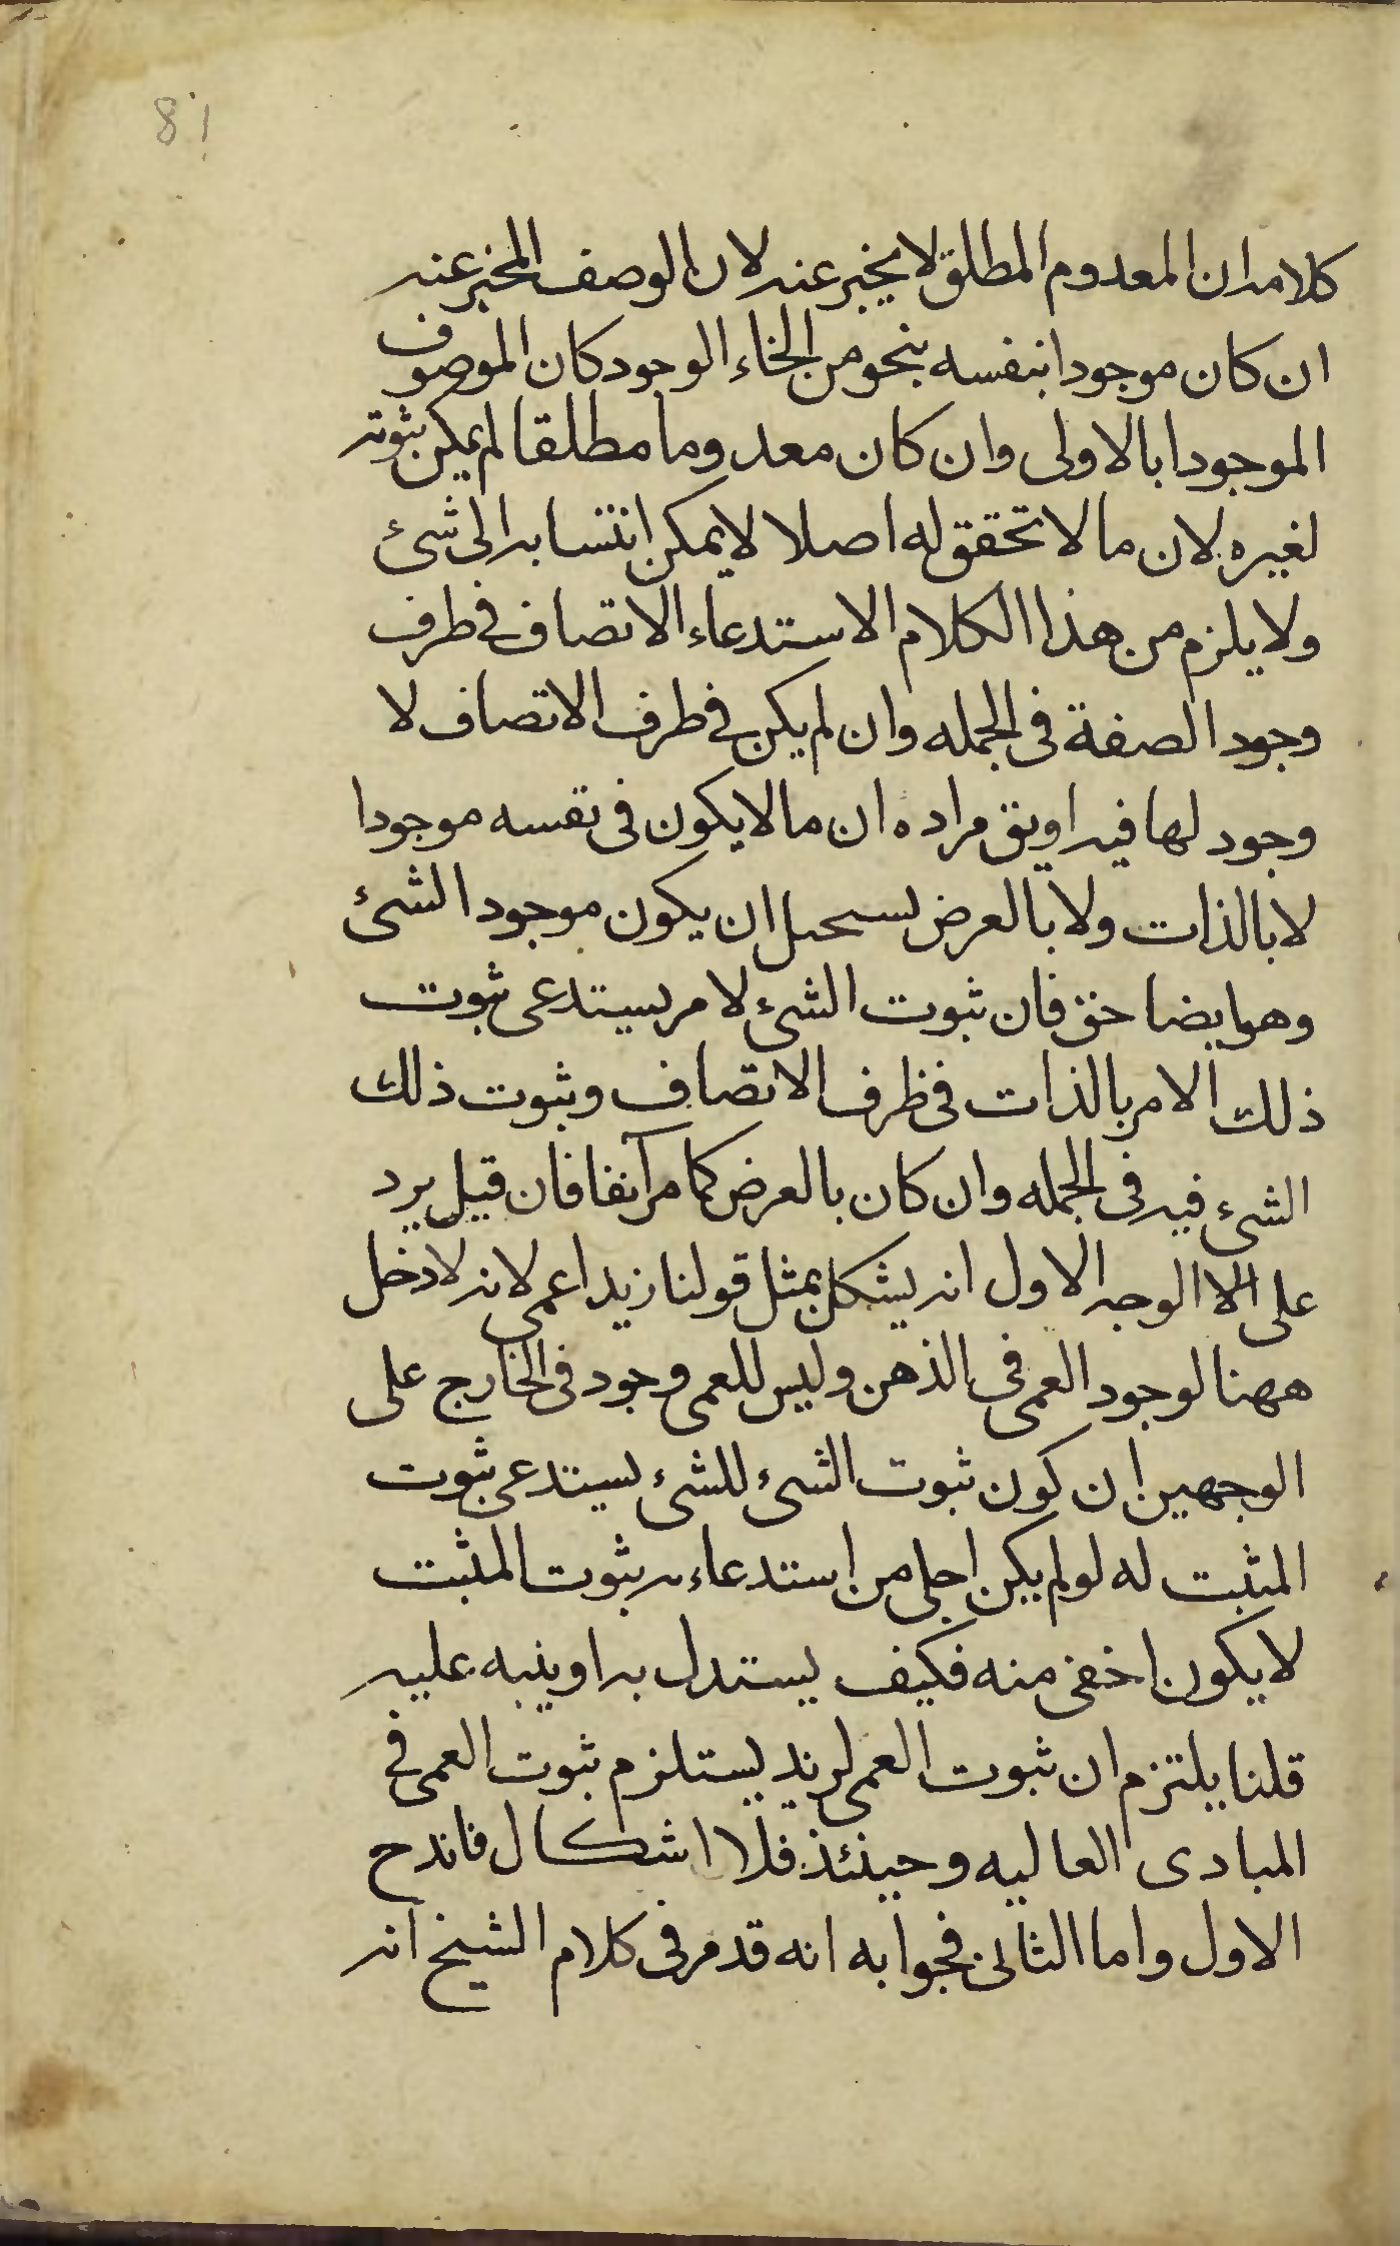 81
كلامه ان المعدوم المطلق لا يخبر عنه لان الوصف المخبر عنه
ان كان موجودا بنفسه بنحو من انحاء الوجود كان الموصوف
الموجودا بالاولى وان كان معدوما مطلقا لم يمكن ثبوته
لغيره لان ما لا تحقق له اصلا لا يمكن انتسابه الى شئ
ولا يلزم من هذا الكلام الا ستدعاء الاتصاف في ظرف
وجود الصفة في الجمله وان لم يكن في ظرف الاتصاف لا
وجود لها فيه او يق مراده ان ما لا يكون في نفسه موجودا
لا بالذات ولا بالعرض يستحيل ان يكون موجود الشئ
وهو ايضا حق فان ثبوت الشئ لامر يستدعى ثبوت
ذلك الامر بالذات في ظرف الاتصاف وثبوت ذلك
الشئ فيه في الجمله وان كان بالعرض كما مر آنفا فان قيل يرد
على الا الوجه الاول انه يشكل بمثل قولنا زيد اعمى لانه لا دخل
ههنا لوجود العمى في الذهن وليس للعمى وجود في الخارج على
الوجهين ان كون ثبوت الشئ للشئ يستدعى ثبوت
المثبت له لو لم يكن اجلى من استدعاءه بثبوت المثبت
لا يكون اخفى منه فكيف يستدل به او ينبه عليه
قلنا يلتزم ان ثبوت العمى لزيد يستلزم ثبوت العمى في
المبادى العاليه وحينئذ فلا اشكال فاندح
الاول واما الثانى فجوابه انه قد مر في كلام الشيخ انه